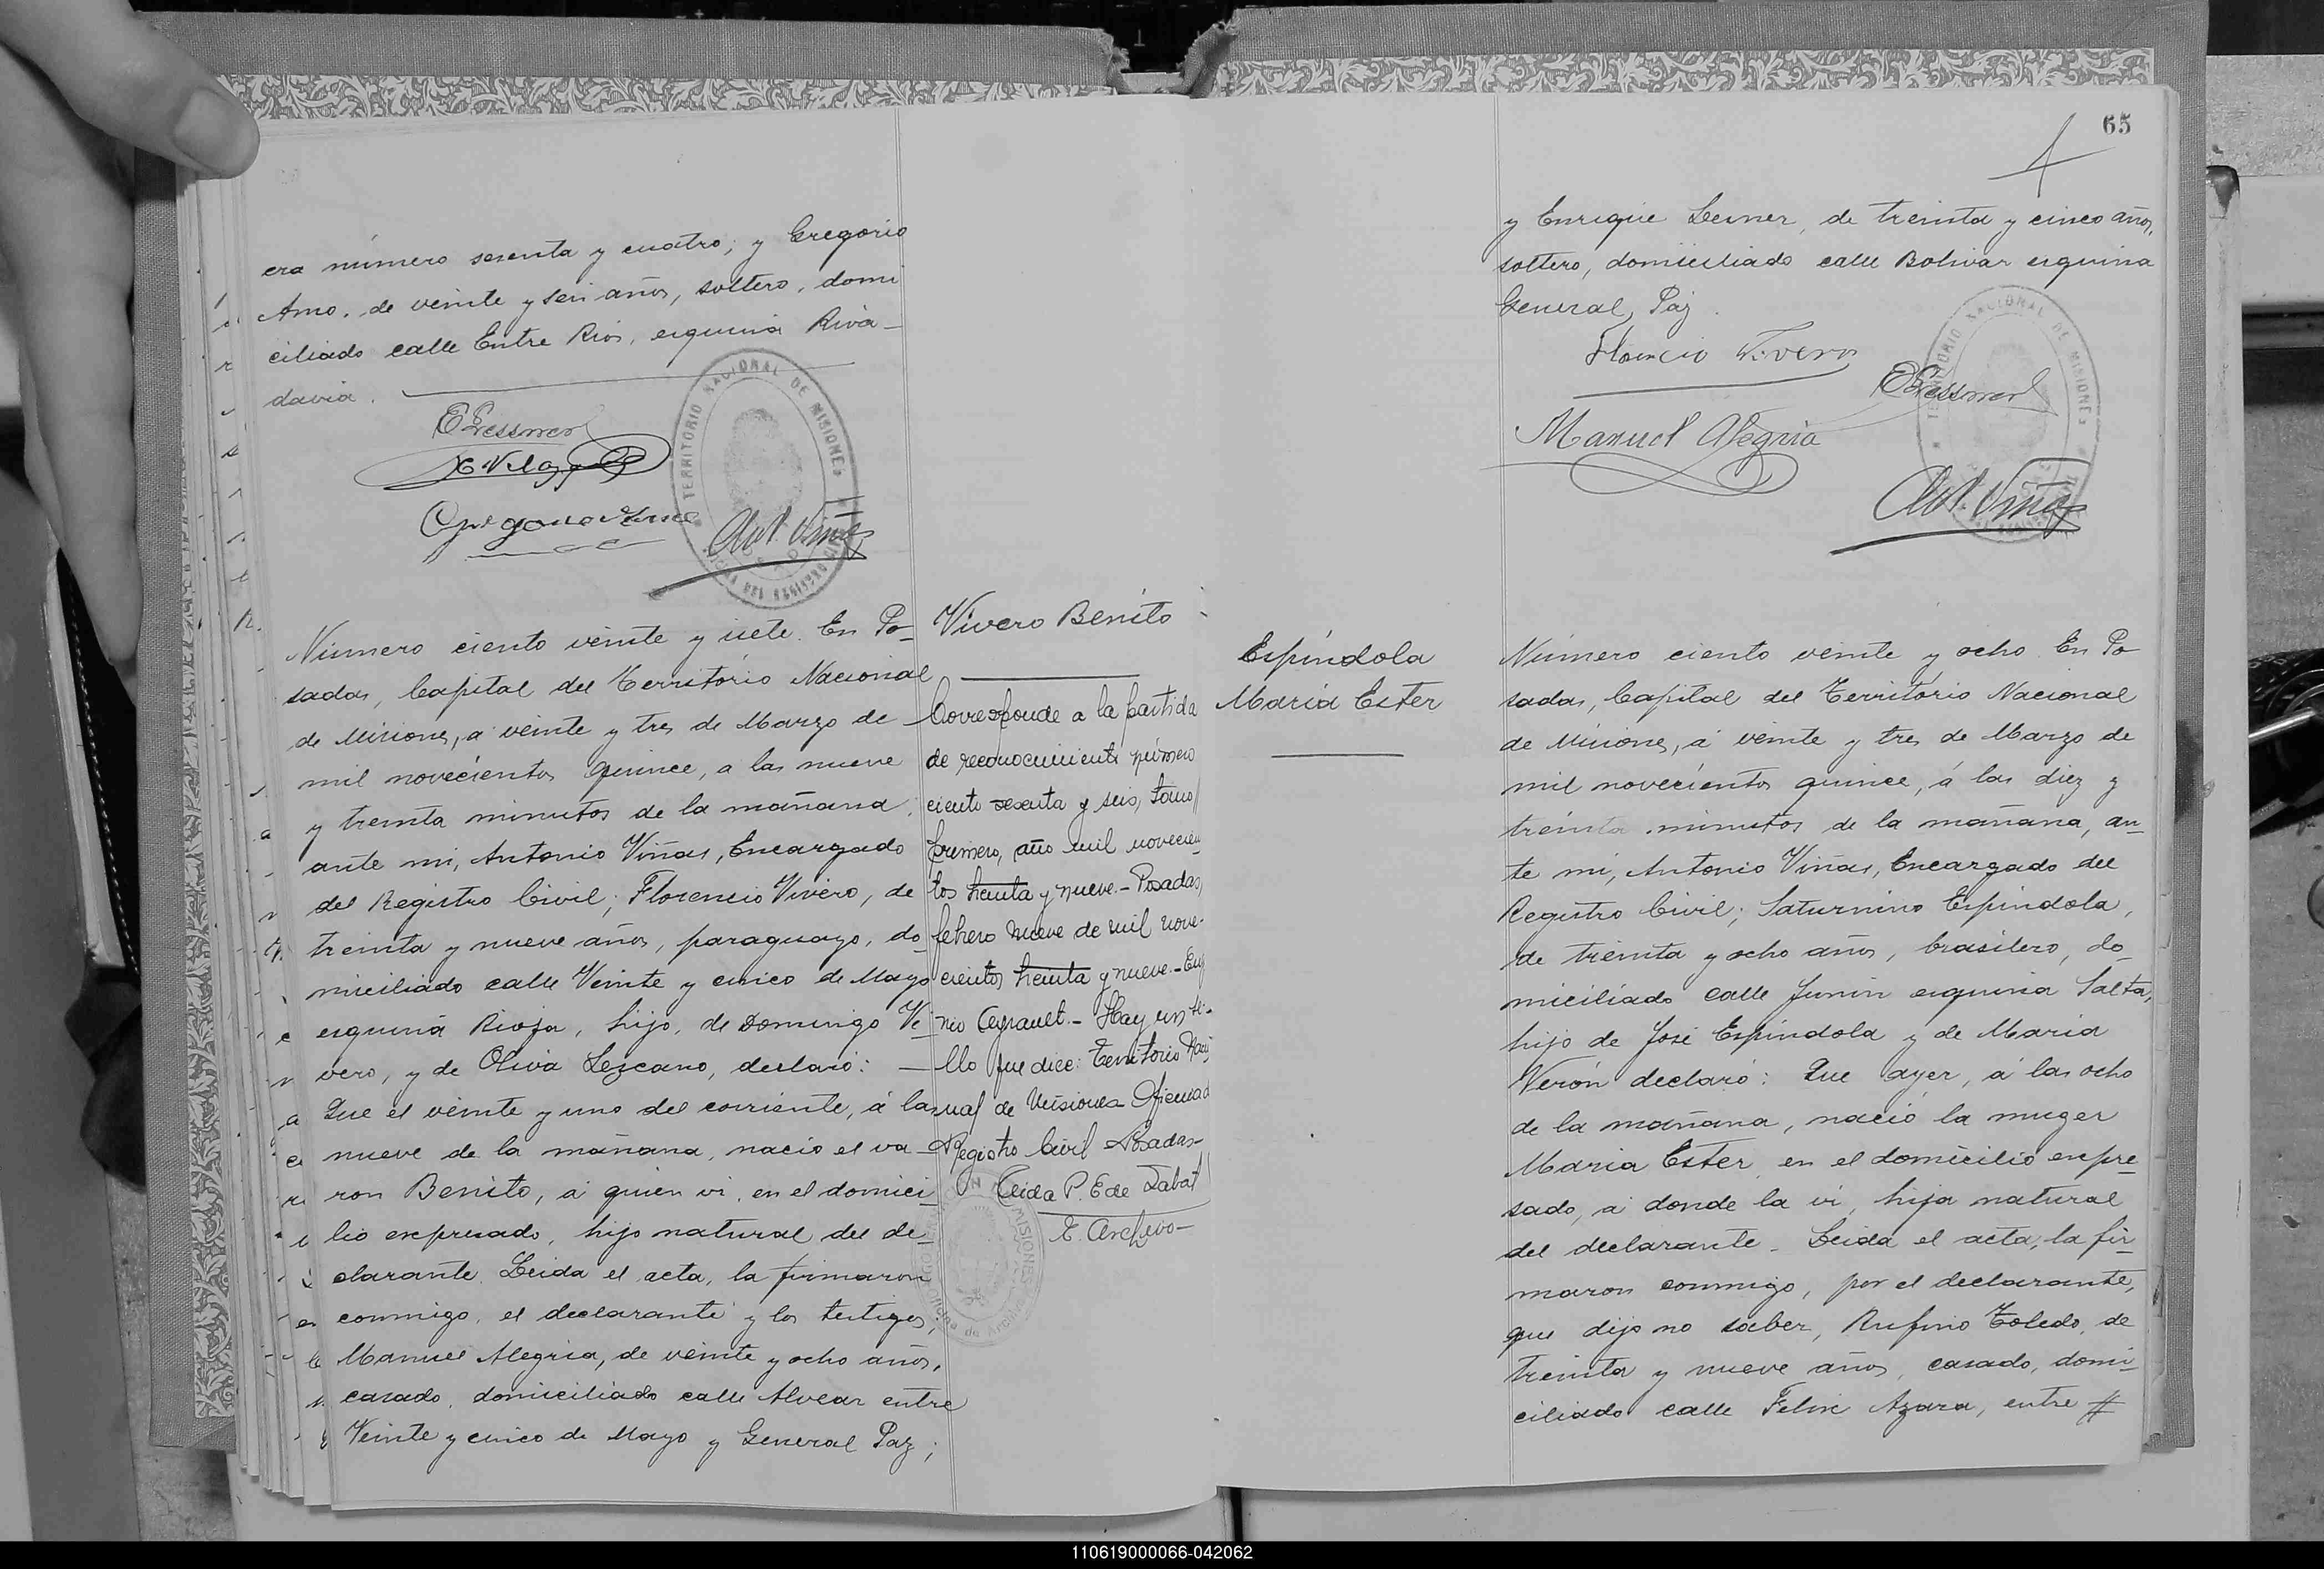 era número sesenta y cuatro; y Gregorio
Amo, de veinte y seis años, soltero, domi
ciliado calle Entre Rios, esquina Riva-
davia.
TERRITORIO NACIONAL DE MISIONES
Ant. Viñas
Número ciento veinte y siete. En Po-
sadas, Capital del Territorio Nacional
de Misiones, a veinte y tres de Marzo de
mil novecientos quince, a las nueve
y treinta minutos de la mañana,
ante mi, Antonio Viñas, Encargado
del Registro Civil; Florencio Vivero, de
treinta y nueve años, paraguayo, do-
miciliado calle Veinte y cinco de Mayo
esquina Rioja, hijo, de Domingo Vi-
vero, y de Oliva Lezcano, declaró: —
Que el veinte y uno del corriente, á las
nueve de la mañana, nació el va-
ron Benito, a quien vi, en el domici-
lio expresado, hijo natural del de-
clarante. Leida el acta, la firmaron
conmigo, el declarante y los testigos,
Manuel Alegria, de veinte y ocho años,
casado, domiciliado calle Alvear entre
Veinte y cinco de Mayo y General Paz;
Vivero Benito
Corresponde a la partida
de reconocimiento número
ciento sesenta y seis, tomo
primero, año mil novecien
tos treinta y nueve.- Posadas,
febrero nueve de mil nove-
cientos treinta y nueve.- Eug
nio Ayrault.- Hay un se-
llo que dice: Territorio Naci
onal de Misiones Oficina d
Registro Civil Posadas-
E. Archivo-
65
y Enrique Lesner, de treinta y cinco años,
soltero, domiciliado calle Bolivar esquina
General Paz.
Florencio Vivero
Manuel Alegria
TERRITORIO NACIONAL DE MISIONES
Ant. Viñas
Espíndola
María Ester
Número ciento veinte y ocho. En Po
sadas, Capital del Territorio Nacional
de Misiones, á veinte y tres de Marzo de
mil novecientos quince, á las diez y
treinta minutos de la mañana, an-
te mi, Antonio Viñas, Encargado del
Registro Civil; Saturnino Espíndola,
de treinta y ocho años, brasilero, do-
miciliado calle Junin esquina Salta,
hijo de José Espíndola y de Maria
Verón declaró: Que ayer, á las ocho
de la mañana, nació la muger
Maria Ester, en el domicilio expre
sado, a donde la vi, hija natural
del declarante. Leida el acta, la fir-
maron conmigo, por el declarante,
que dijo no saber, Rufino Toledo, de
treinta y nueve años, casado, domi-
ciliado calle Felix Azara, entre #
110619000066-042062